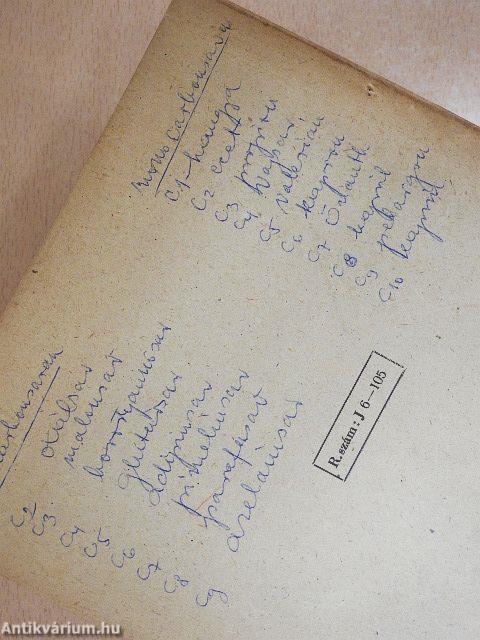 Mono carbonsavak
C1 - hangya
C2 ecet
C3 propion
C4 vajsav
C5 valerián
C6 kapron
C7 Önanth
C8 kapril
C9 pelargon
C10 kapril
carbonsavak
C2 oxálsav
C3 malonsav
C4 borostyánkősav
C5 glutársav
C6 adipinsav
C7 pimelinsav
C8 parafasav
C9 azelainsav
R. szám: J 6-105
Antikvárium.hu